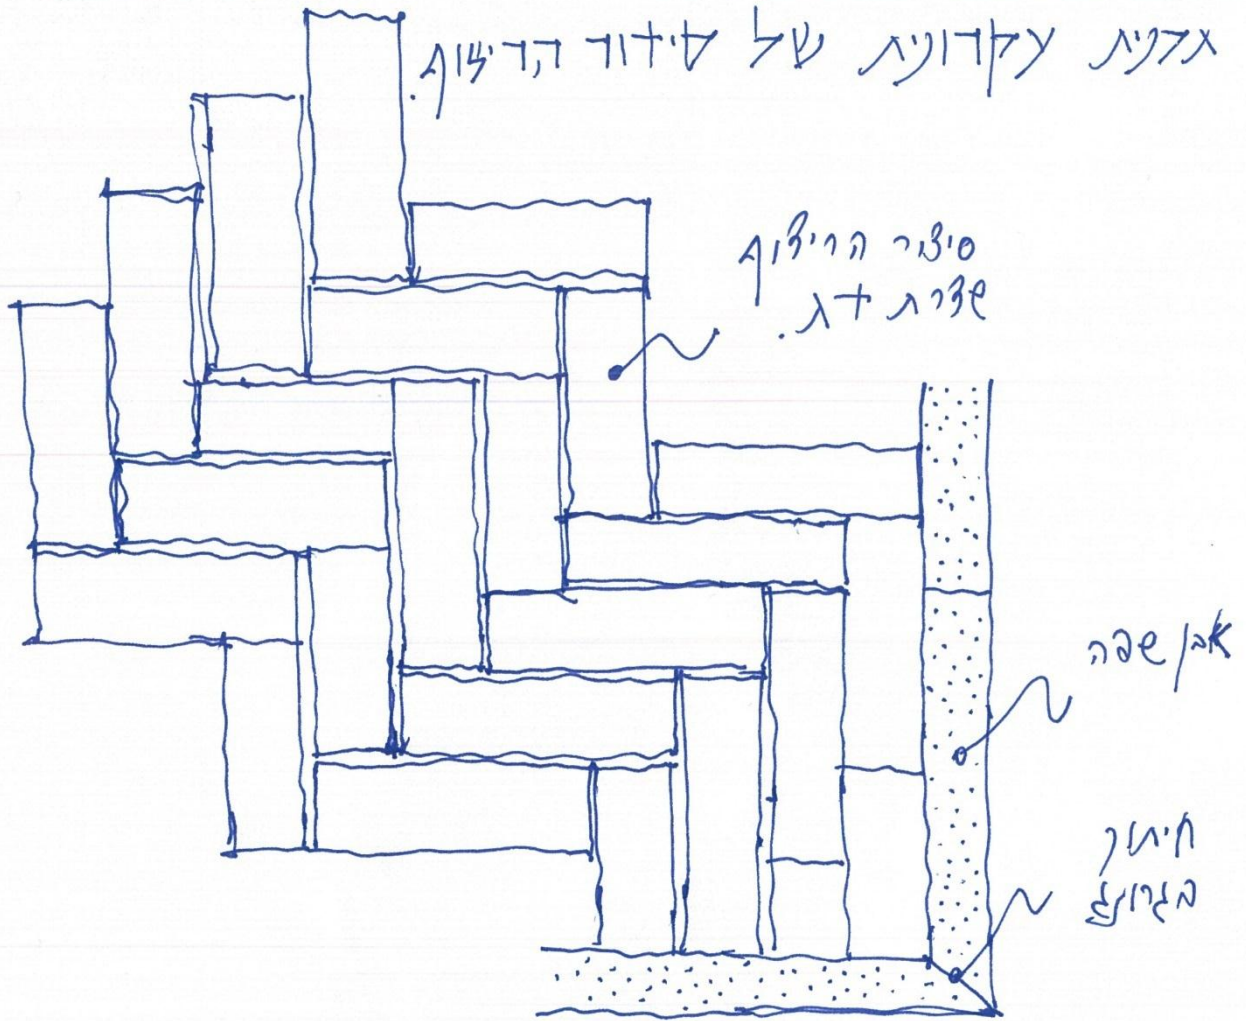 תכנית עקרונית של סידור הריצוף.
סידור הריצוף
שדרת דג.
אבן שפה
חיתוך
בגרונג